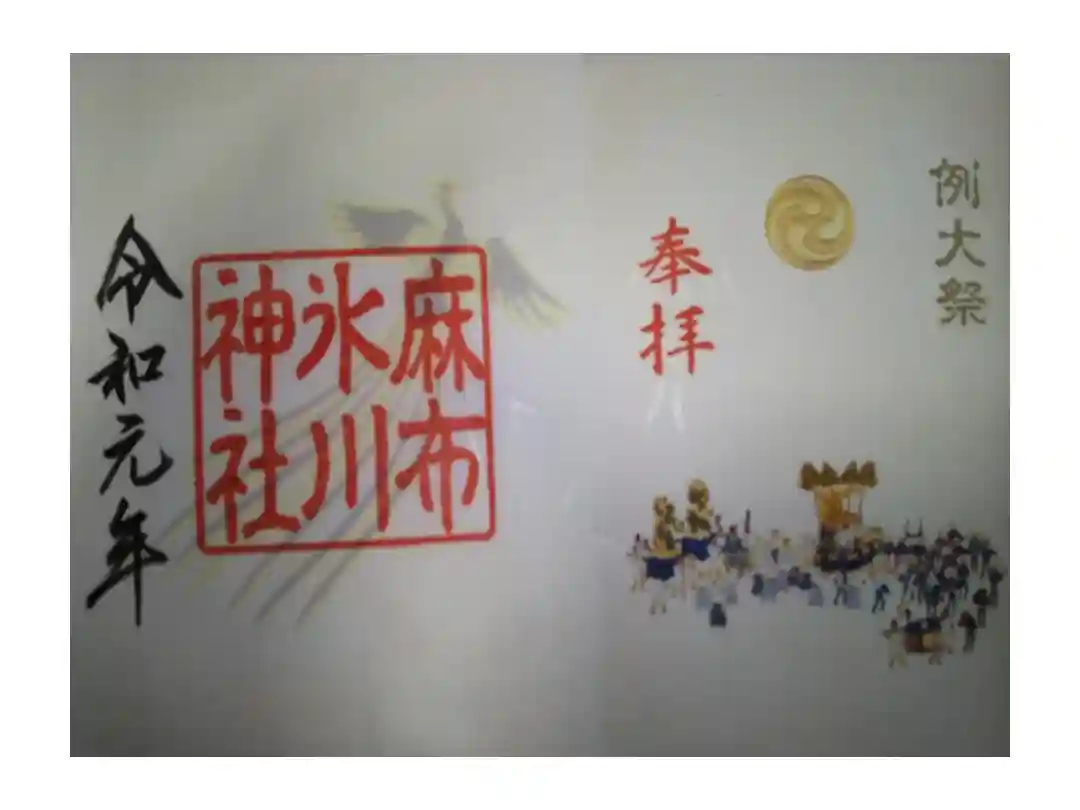 例大祭
奉拝
麻布
氷川
神社
令和元年